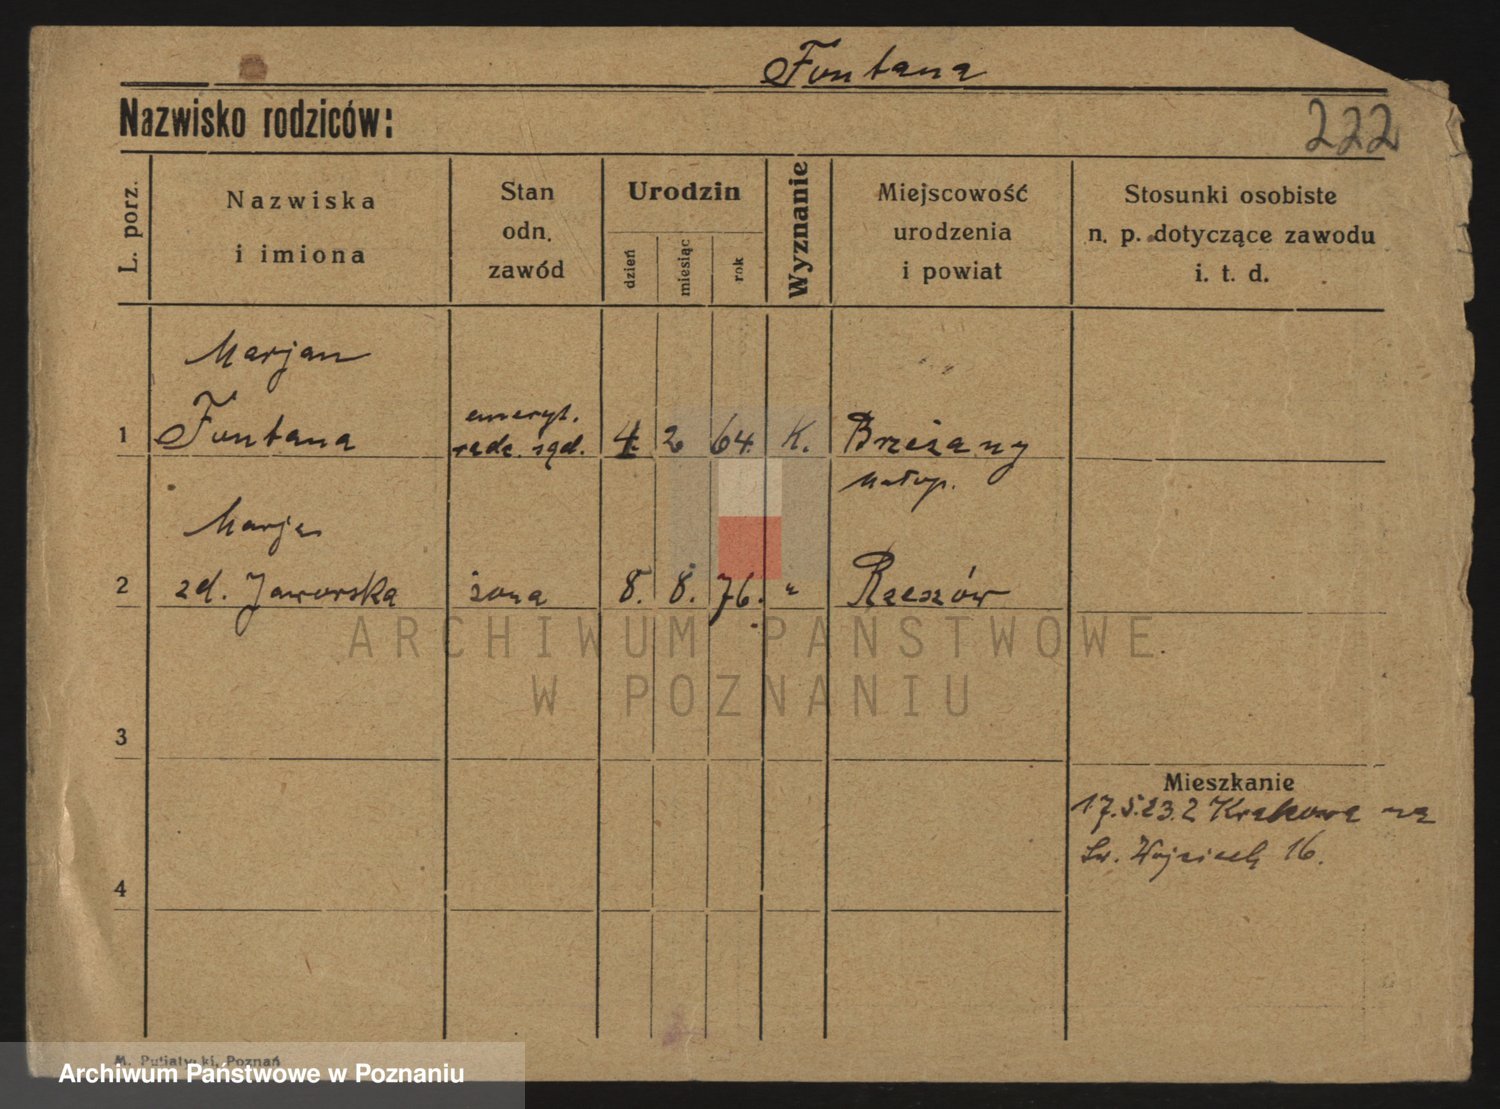 Fontana
Nazwisko rodziców:
222
L. porz.
Nazwiska
i imiona
Stan
odn.
zawód
Urodzin
dzień
miesiąc
rok
Wyznanie
Miejscowość
urodzenia
i powiat
Stosunki osobiste
n. p. dotyczące zawodu
i. t. d.
Marjan
1 Fontana emeryt. 4. 2 64. K. Brzeżany
radc. sąd.
Małop.
Marja
2 zd. Jaworska żona 8. 8. 76. " Rzeszów
ARCHIWUM PAŃSTWOWE
W POZNANIU
3
Mieszkanie
17.5.23. z Krakowa na
Św. Wojciech 16.
4
Poznań
Archiwum Państwowe w Poznaniu